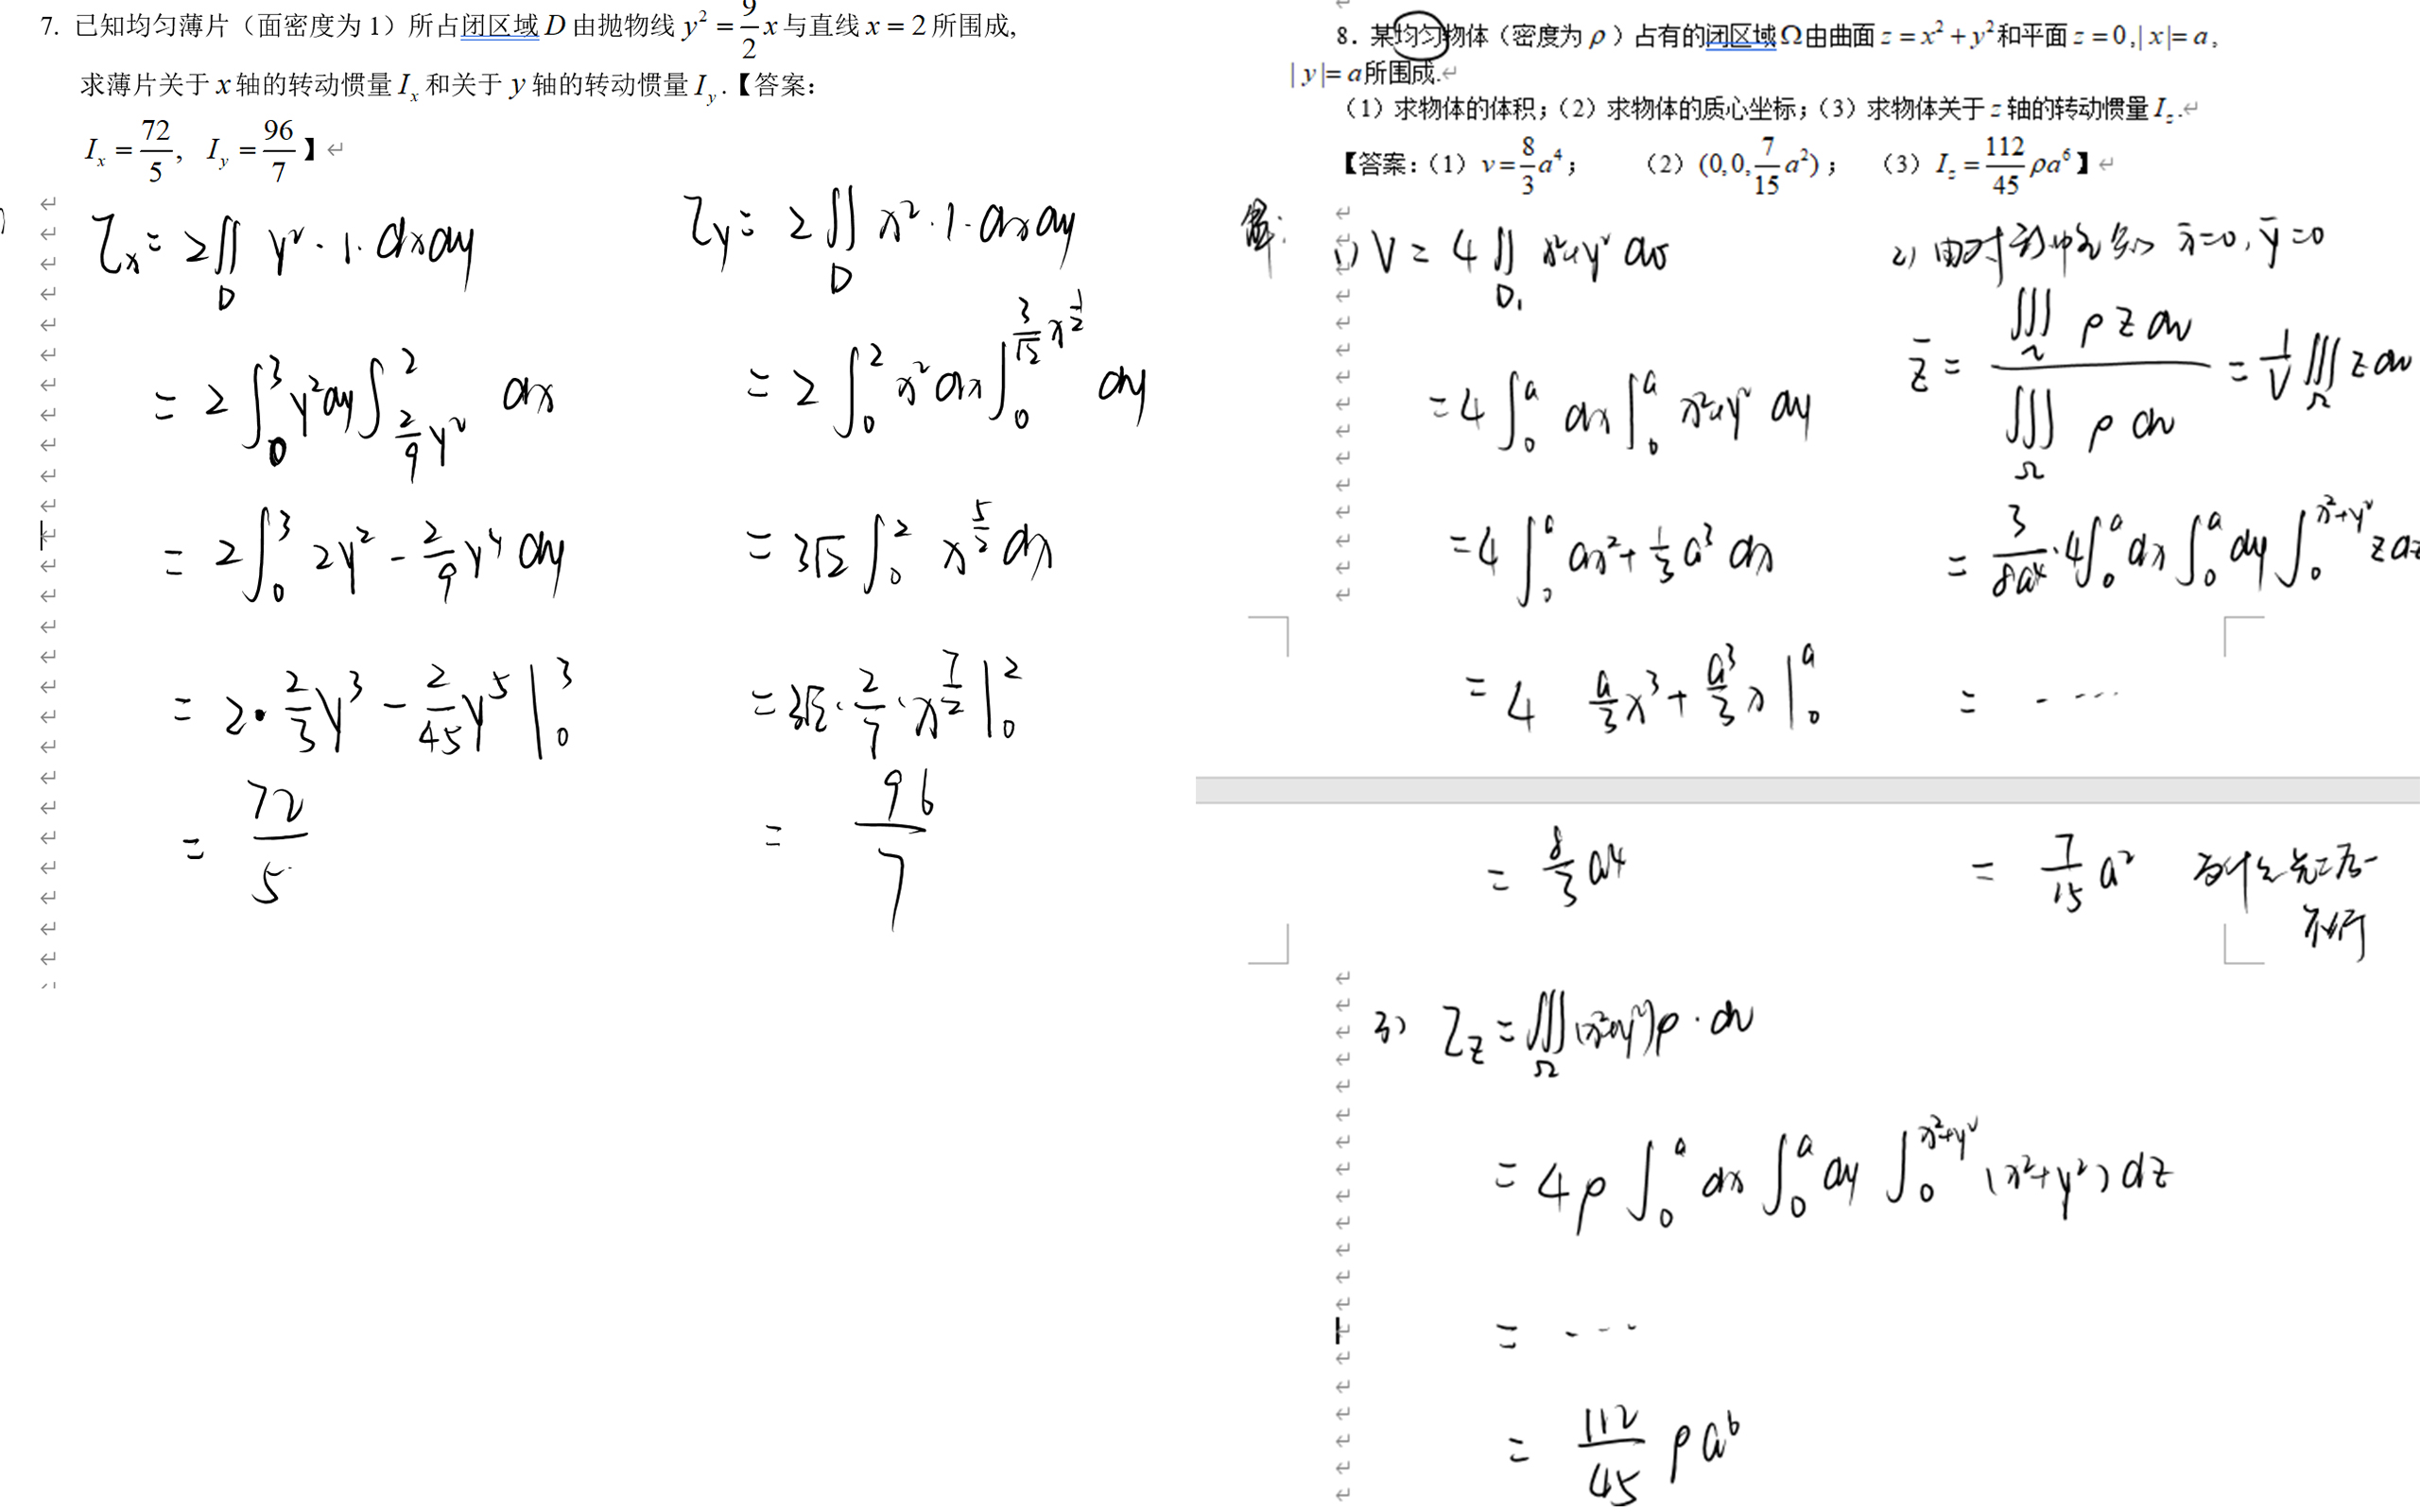 7. 已知均匀薄片（面密度为 1）所占闭区域 D 由抛物线 y² = 9/2 x 与直线 x = 2 所围成,
求薄片关于 x 轴的转动惯量 I_x 和关于 y 轴的转动惯量 I_y.【答案:
I_x = 72/5, I_y = 96/7】
I_x = 2∬_D y²·1·dxdy
= 2∫_0^3 y²dy ∫_{2/9 y²}^2 dx
= 2∫_0^3 2y² - 2/9 y⁴ dy
= 2· 2/3 y³ - 2/45 y⁵ |_0^3
= 72/5
I_y = 2∬_D x²·1·dxdy
= 2∫_0^2 x²dx ∫_0^{3/√2 x^{1/2}} dy
= 3√2 ∫_0^2 x^{5/2} dx
= 3√2 · 2/7 · x^{7/2} |_0^2
= 96/7
8. 某均匀物体（密度为 ρ）占有的闭区域 Ω 由曲面 z = x² + y² 和平面 z = 0,| x |= a,
| y |= a 所围成.
（1）求物体的体积;（2）求物体的质心坐标;（3）求物体关于 z 轴的转动惯量 I_z.
【答案:（1）v = 8/3 a⁴; （2）(0,0, 7/15 a²); （3）I_z = 112/45 ρa⁶】
解:
1) V = 4∬_{D₁} x²+y² dσ
= 4∫_0^a dx ∫_0^a x²+y² dy
= 4∫_0^a ax² + 1/3 a³ dx
= 4 a/3 x³ + a³/3 x |_0^a
= 8/3 a⁴
2) 由对称性知 x̄=0, ȳ=0
z̄ = ∭_Ω ρzdv / ∭_Ω ρdv = 1/V ∭_Ω zdv
= 3/8a⁴ ·4∫_0^a dx ∫_0^a dy ∫_0^{x²+y²} zdz
= ····
= 7/15 a² 为什么先二后一
不行
3) I_z = ∭_Ω (x²+y²)ρ·dv
= 4ρ ∫_0^a dx ∫_0^a dy ∫_0^{x²+y²} (x²+y²) dz
= ····
= 112/45 ρa⁶